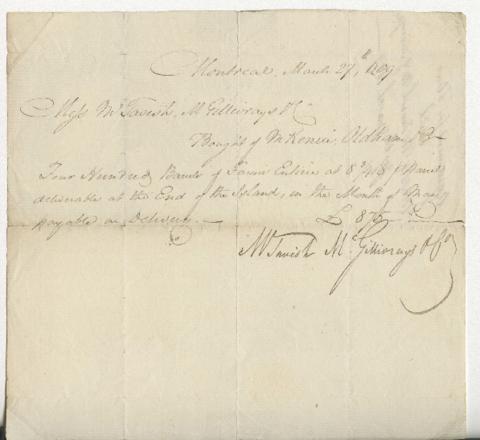 Montreal, March 27th, 1809
Mess McTavish, McGillivrays & Co
Bought of McKenzie, Oldham, & Co
Four Hundred Barrels of Farine Entière at 8 Barrel
deliverable at the End of the Island, in the Month of May
payable on Delivery. — £ 875
McTavish McGillivrays & Co